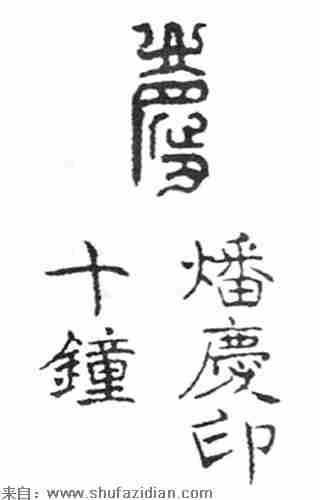 慶
燔慶印
十鐘
来自：www.shufazidian.com